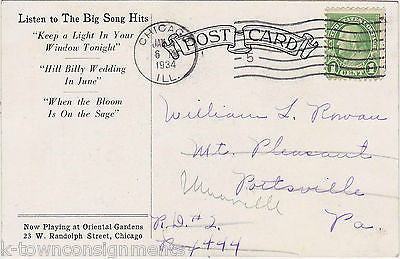 Listen to The Big Song Hits
"Keep a Light In Your
Window Tonight"
"Hill Billy Wedding
In June"
"When the Bloom
Is On the Sage"
Now Playing at Oriental Gardens
23 W. Randolph Street, Chicago
CHICAGO
JAN
6
1934
ILL.
5
POST CARD
1 CENT 1
William L. Rowan
Mt. Pleasant
Pottsville
Pa.
R.D. #2
Box 444
k-townconsignments